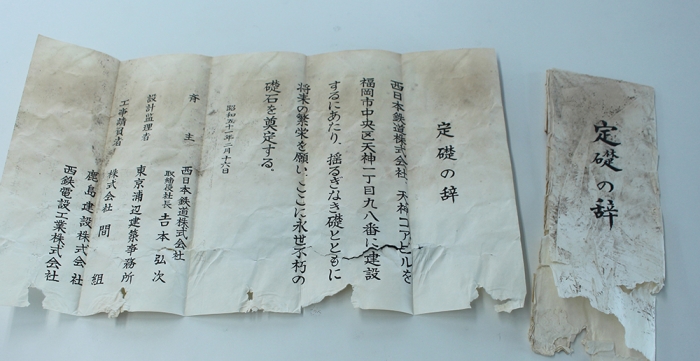 定礎の辞
西日本鉄道株式会社、天神コアビルを
福岡市中央区天神一丁目九八番に建設
するにあたり、揺るぎなき礎とともに
将来の繁栄を願い、ここに永世不朽の
礎石を奠定する。
昭和五十一年二月十六日
斉主
西日本鉄道株式会社
取締役社長 吉本弘次
設計監理者
東京浦辺建築事務所
工事請負者
株式会社 間組
鹿島建設株式会社
西鉄電設工業株式会社
定礎の辞